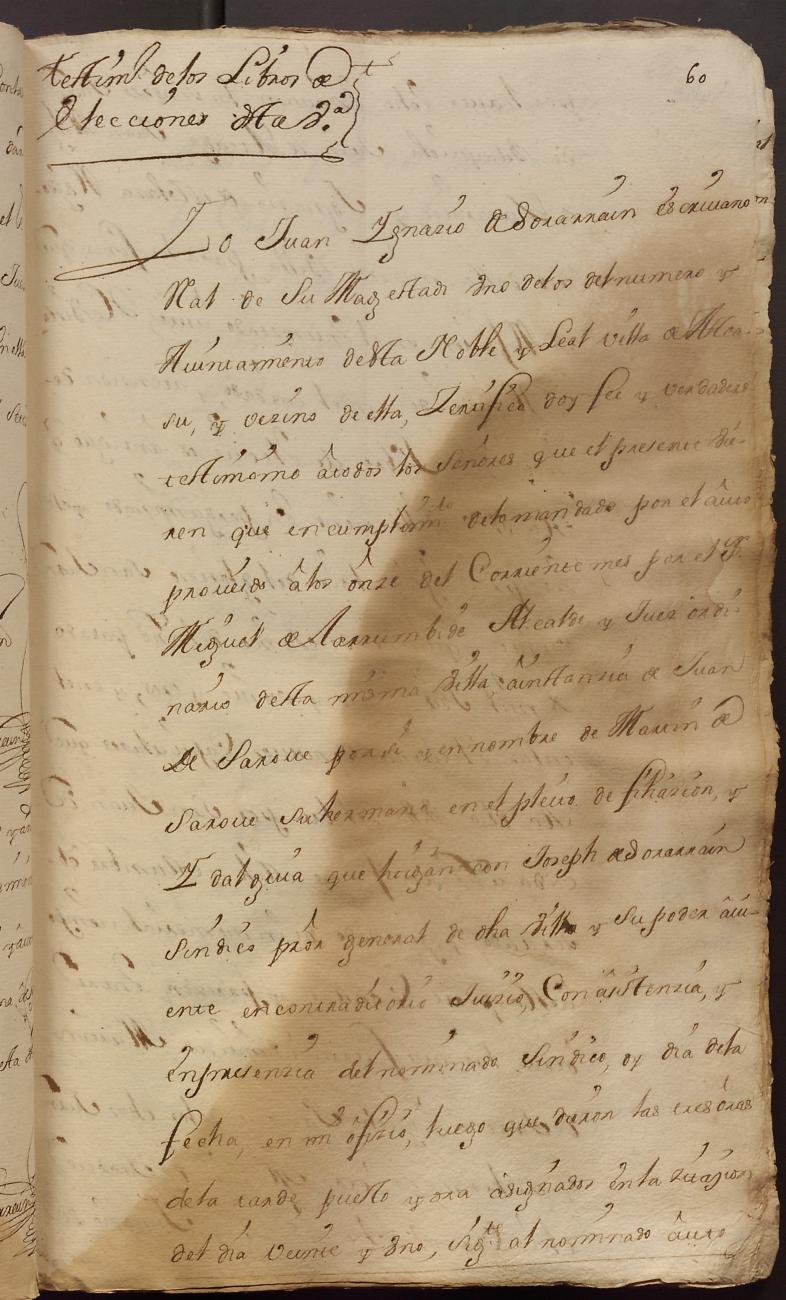 testim.º de los Libros de
Elecciones desta V.ª
60
Yo Juan Ygnazio de Dorarrain escriuano
Ral de Su Magestad Vno delos del numero y
Aiuntamiento desta Noble y Leal villa de
su, y vezino de ella, Zertifico doy fee y verdadero
testimonio â todos los Señores que el presente vie-
ren que en cumplim.to delo mandado por el âuto
proueido â los ônze del Corriente mes por el S.r
Miguel de Larrumbide Alcalde y Juez ordi-
nario desta misma Villa, âinstanzia de Juan
De Saroue por si y en nombre de Martin de
Saroue su hermano en el pleito de filiazion, y
Ydalguia que litigan con Joseph de Dorarrain
Sindico prôr general de dha Villa y Su poder âui-
ente en contraditorio Juizio, Con âsistenzia, y
en presenzia del nominado Sindico, oy dia dela
fecha, en mi ôfizio, luego que dieron las tres ôras
dela tarde puesto y ora âsignados en la zitazion
del dia veinte y Vno, sig.te al nominado âuto